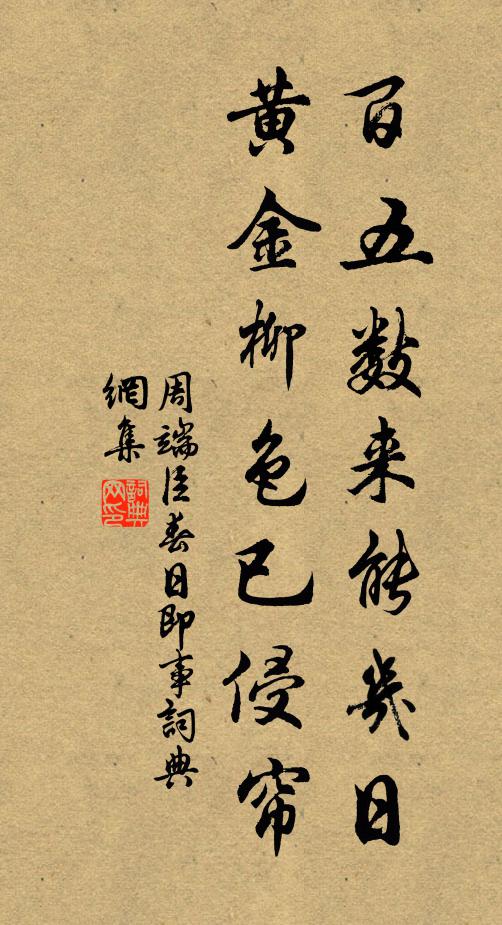 百五数来能幾日
黄金柳色已侵帘
周端臣春日即事詞典
網集
詞典
网印